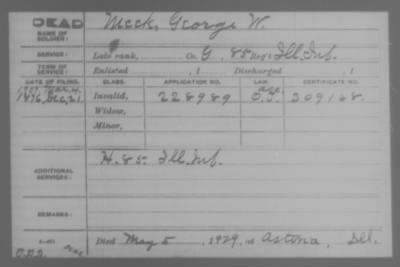 DEAD
NAME OF SOLDIER: Meek, George W.
SERVICE: Late rank, Co. G, 85 Reg't Ill. Inf.
TERM OF SERVICE: Enlisted , 1 Discharged , 1
DATE OF FILING. CLASS. APPLICATION NO. LAW. CERTIFICATE NO.
1876, Dec, 21 Invalid, 228989 309168
Widow,
Minor,
ADDITIONAL SERVICES: H. 85 Ill. Inf.
REMARKS:
Died May 5, 1929, at Astoria, Ill.